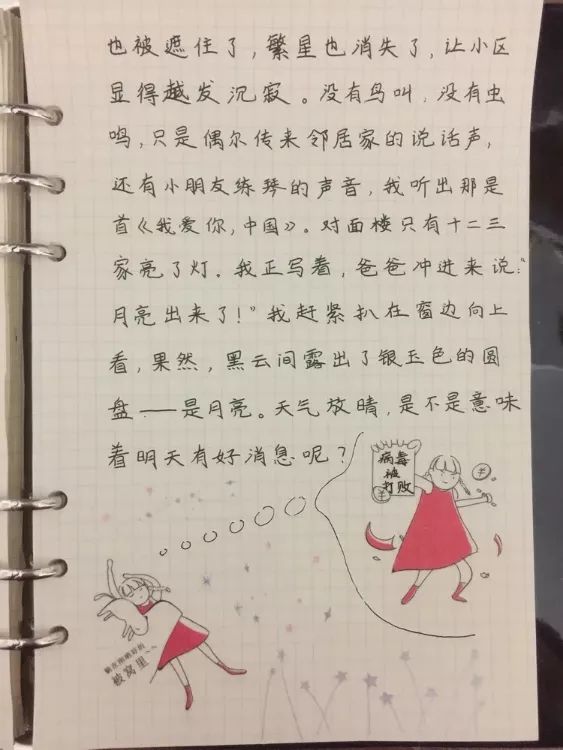 也被遮住了,繁星也消失了,让小区
显得越发沉寂。没有鸟叫,没有虫
鸣,只是偶尔传来邻居家的说话声,
还有小朋友练琴的声音,我听出那是
首《我爱你,中国》。对面楼只有十二三
家亮了灯。我正写着,爸爸冲进来说:“
月亮出来了!”我赶紧扒在窗边向上
看,果然,黑云间露出了银玉色的圆
盘——是月亮。天气放晴,是不是意味
着明天有好消息呢?
病毒
被
打败
被窝里~~